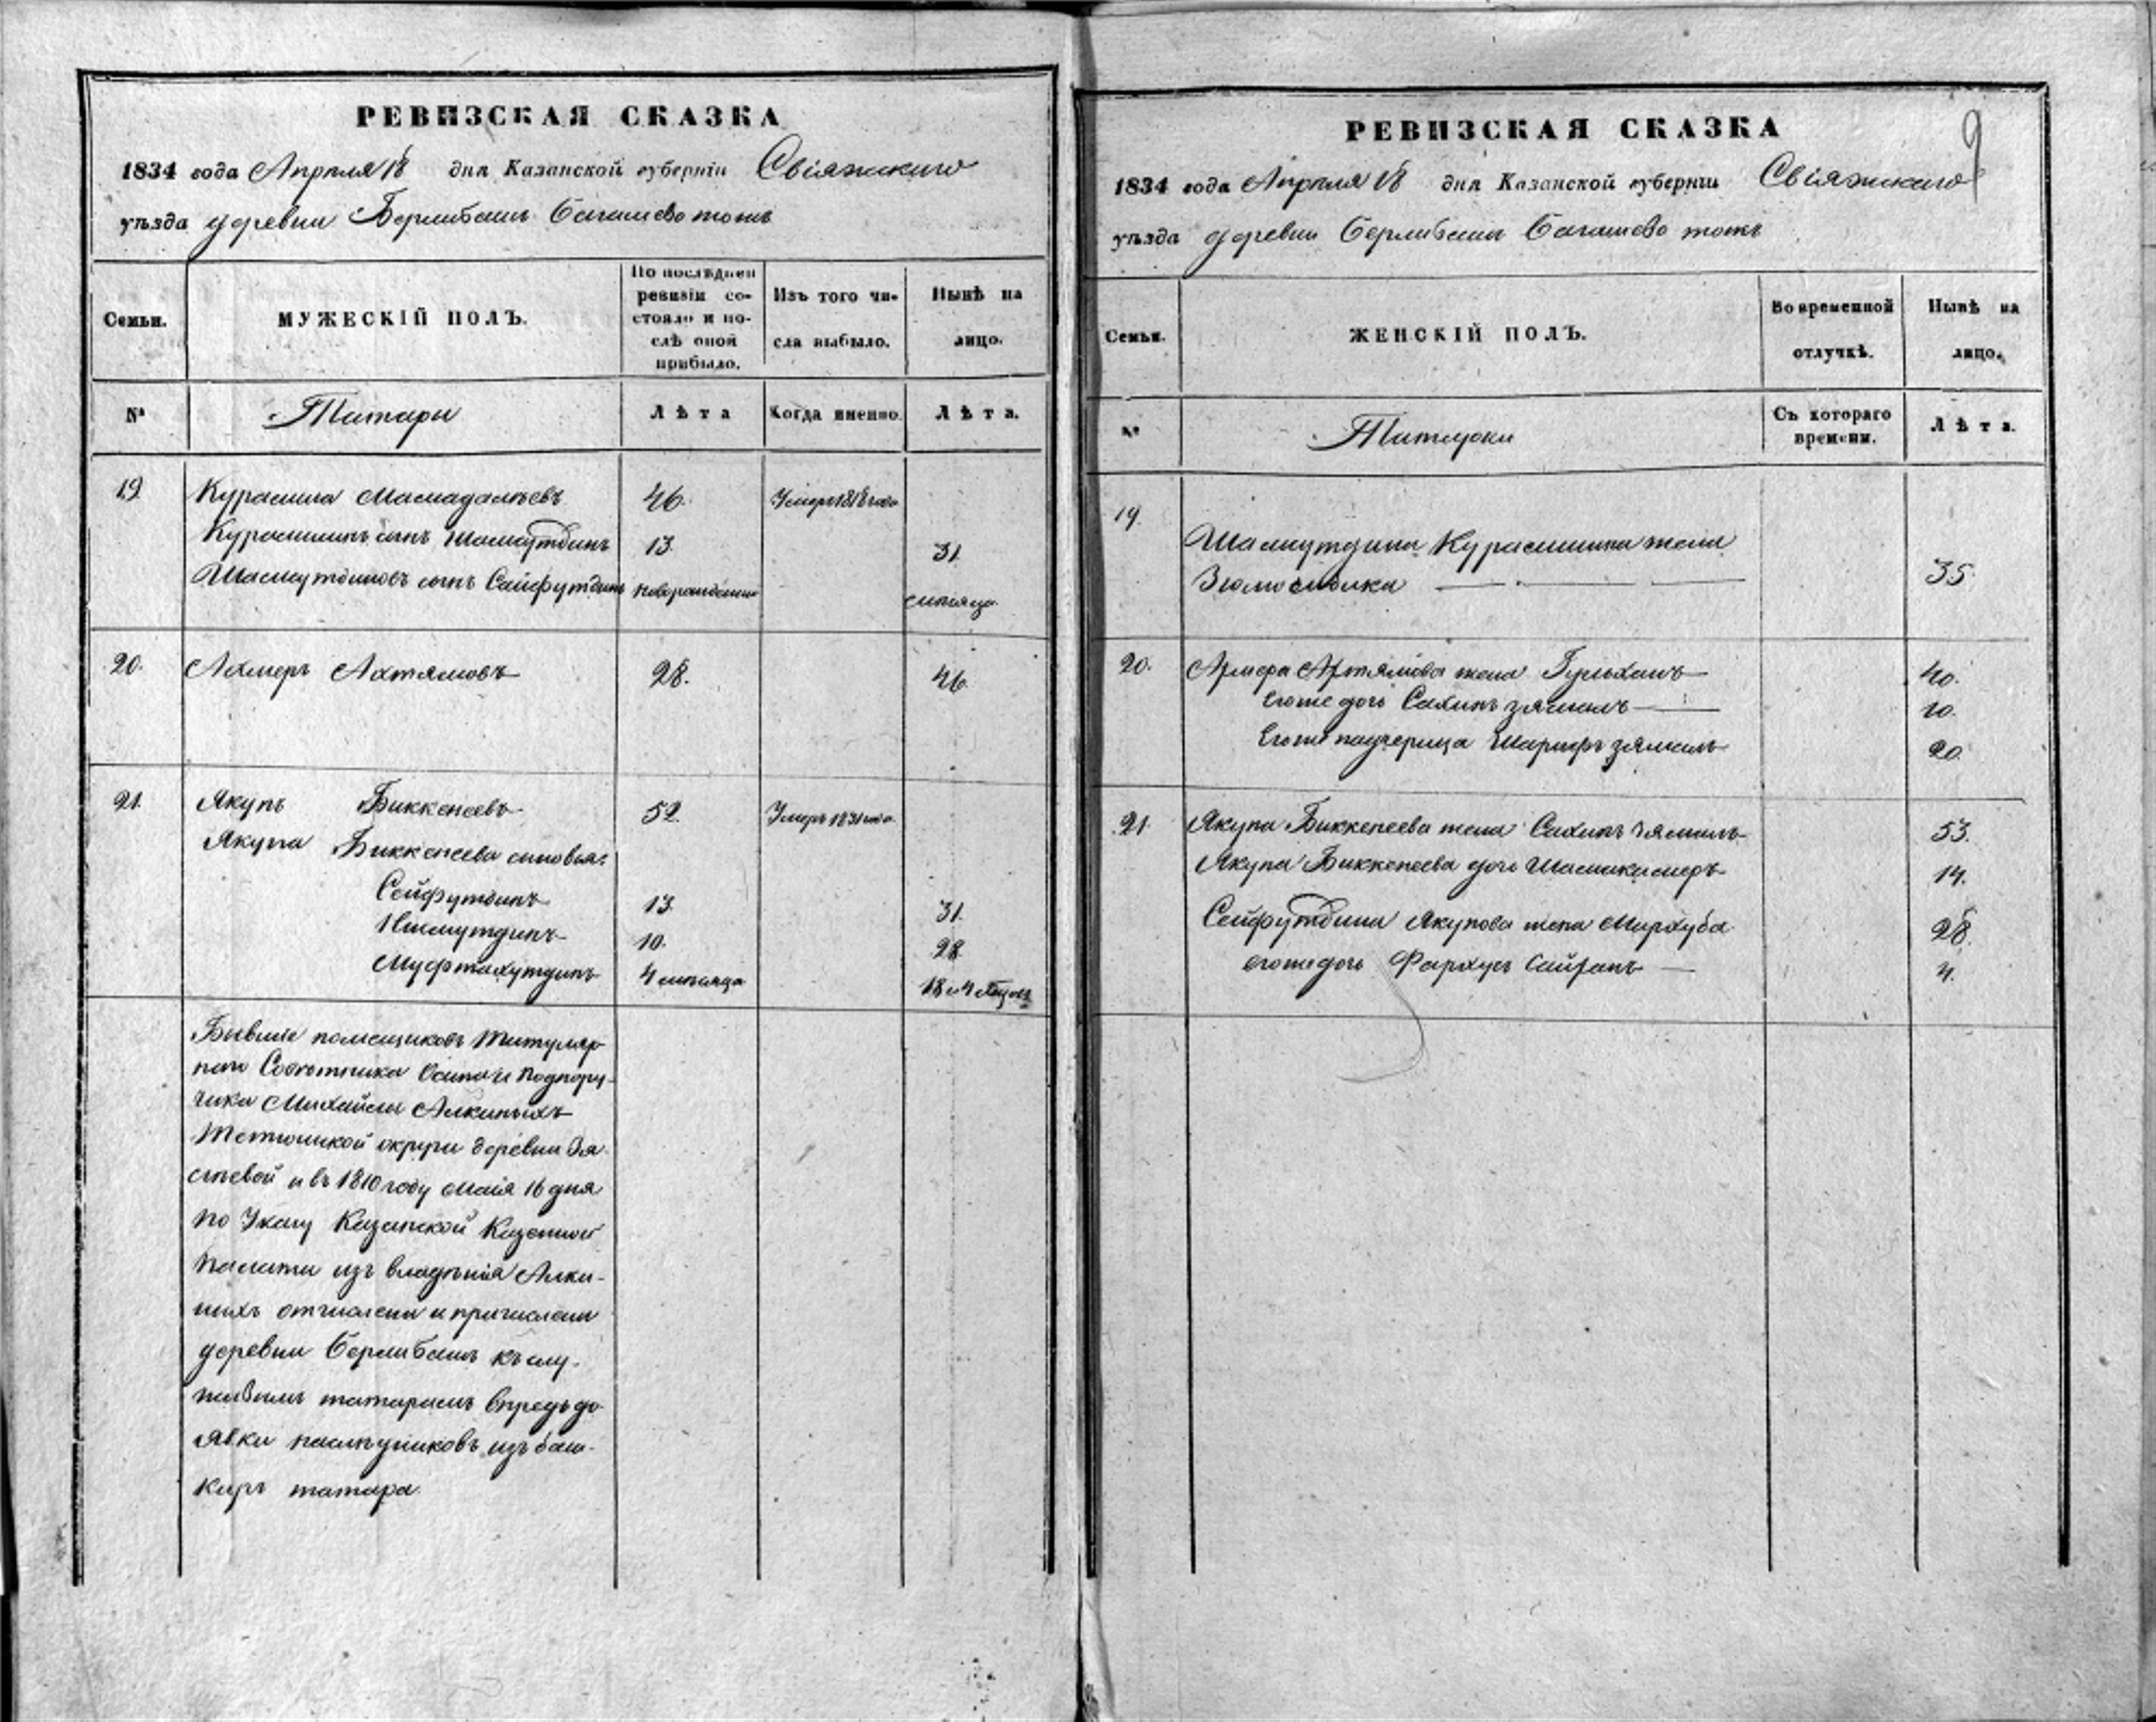 РЕВИЗСКАЯ СКАЗКА
1834 года Апреля 18 дня Казанской губерніи Свіяжскаго
уѣзда деревни Бермибашъ Багишево тожъ
Семьи.
МУЖЕСКІЙ ПОЛЪ.
По послѣдней ревизіи со-
стояло и по-
слѣ оной
прибыло.
Изъ того чи-
сла выбыло.
Нынѣ на
лицо.
№
Татары
Лѣта
Когда именно.
Лѣта.
19. Курамша Мамадалеевъ 46. Умеръ 1818 года
Курамшинъ сынъ Шамсутдинъ 13. 31.
Шамсутдиновъ сынъ Сайфутдинъ новорожденны месяца
20. Ахмеръ Ахтямовъ 28. 46.
21. Якупъ Биккенеевъ 52. Умеръ 1831 года
Якупа Биккенеева сыновья:
Сейфутдинъ 13. 31.
Нисмутдинъ 10. 28
Муфтахутдинъ 4 месяца 18 и 4 месяца
Бывшіе помещиковъ Титуляр-
наго Советника Осипа и Подпору-
чика Михайлы Алкиныхъ
Тетюшской округи деревни
и въ 1810 году Маія 16 дня
по Указу Казанской Казенной
Палаты изъ владѣнія Алки-
ныхъ отчислены и причислены
деревни Бермибашъ къ слу-
жилымъ татарамъ впредь до
явки изъ баш-
киръ татара.
РЕВИЗСКАЯ СКАЗКА
9
1834 года Апреля 18 дня Казанской губерніи Свіяжскаго
уѣзда деревни Бермибашъ Багишево тожъ
Семьи.
ЖЕНСКІЙ ПОЛЪ.
Во временной
отлучкѣ.
Нынѣ на
лицо.
№
Татарки
Съ котораго
времени.
Лѣта.
19. Шамсутдина Курамшина жена
35.
20. Ахмера Ахтямова жена Гульханъ 40.
Его же дочь Сахипъ зямалъ 10.
Его же падчерица Шарифъ зямалъ 20.
21. Якупа Биккенеева жена Сахипъ зямалъ 53.
Якупа Биккенеева дочь Шамсикамеръ 14.
Сейфутдина Якупова жена Мирхуба 28.
его же дочь 4.